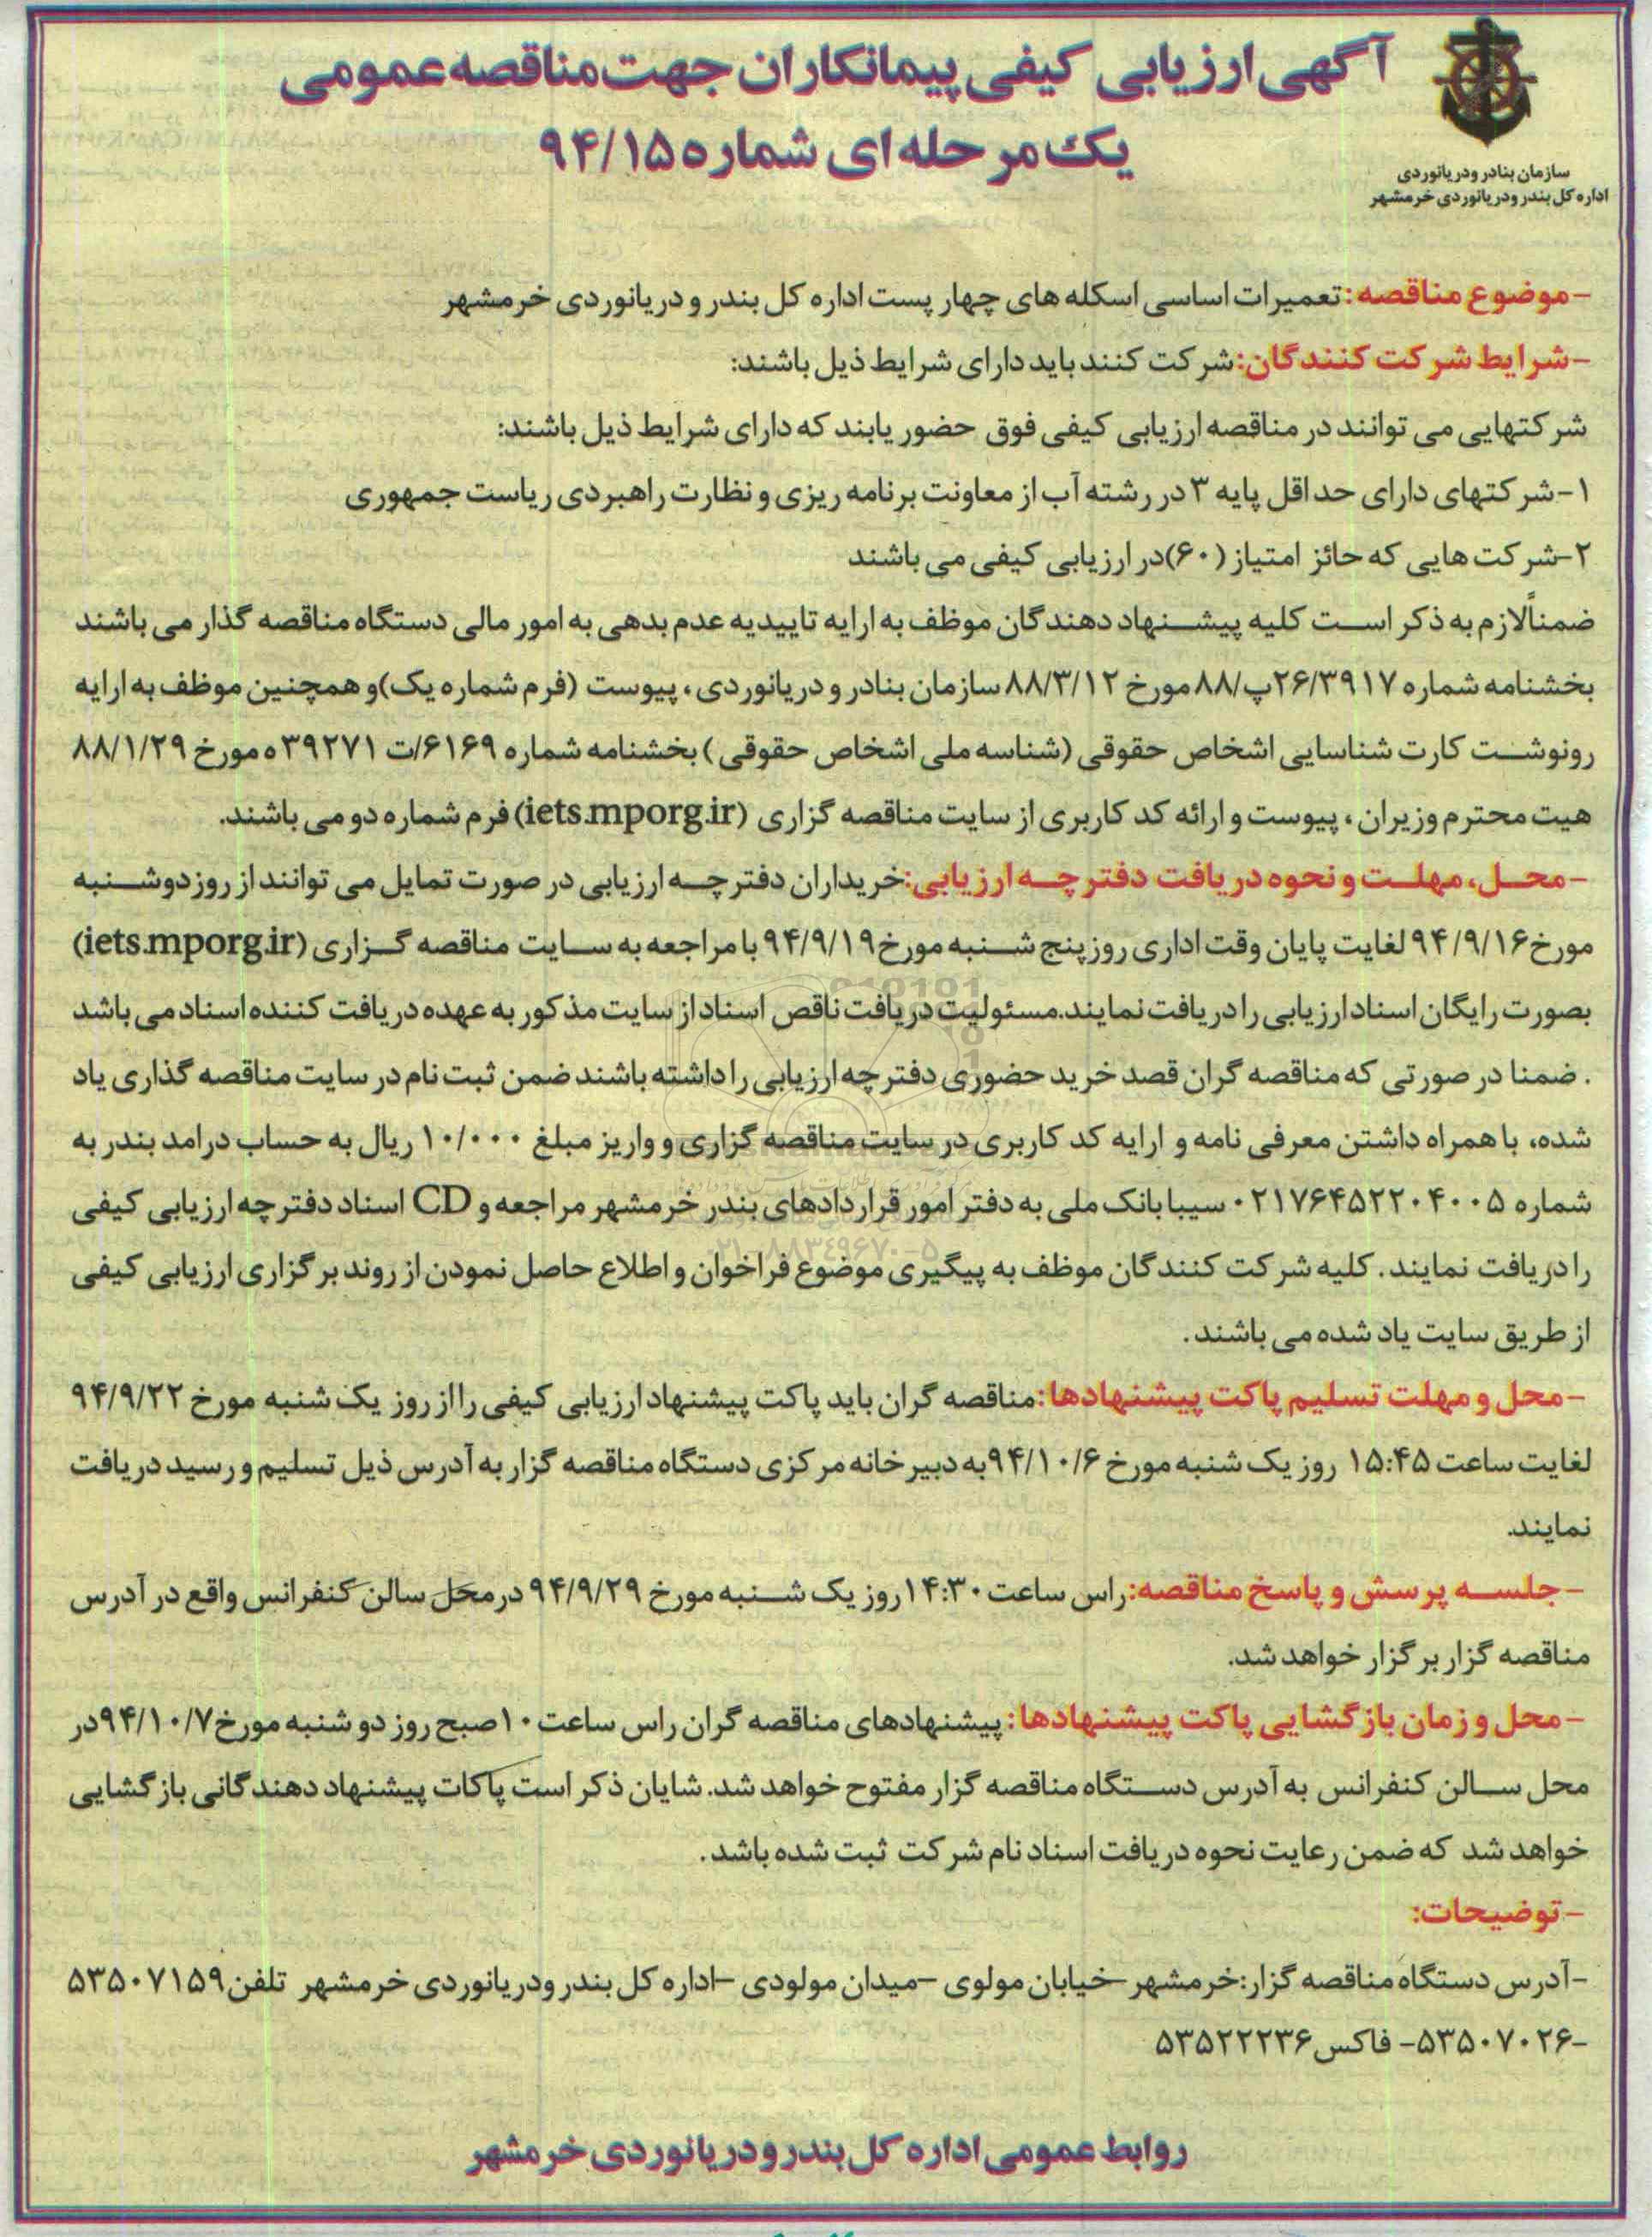 آگهی ارزیابی کیفی پیمانکاران جهت مناقصه عمومی
یک مرحله ای شماره ۹۴/۱۵
سازمان بنادر و دریانوردی
اداره کل بندر و دریانوردی خرمشهر
-موضوع مناقصه: تعمیرات اساسی اسکله های چهار پست اداره کل بندر و دریانوردی خرمشهر
-شرایط شرکت کنندگان: شرکت کنند باید دارای شرایط ذیل باشند:
شرکتهایی می توانند در مناقصه ارزیابی کیفی فوق حضور یابند که دارای شرایط ذیل باشند:
۱-شرکتهای دارای حداقل پایه ۳ در رشته آب از معاونت برنامه ریزی و نظارت راهبردی ریاست جمهوری
۲-شرکت هایی که حائز امتیاز (۶۰)در ارزیابی کیفی می باشند
ضمناًلازم به ذکر است کلیه پیشنهاد دهندگان موظف به ارایه تاییدیه عدم بدهی به امور مالی دستگاه مناقصه گذار می باشند
بخشنامه شماره ۲۶/۳۹۱۷پ/۸۸ مورخ ۸۸/۳/۱۲ سازمان بنادر و دریانوردی، پیوست (فرم شماره یک)و همچنین موظف به ارایه
رونوشت کارت شناسایی اشخاص حقوقی (شناسه ملی اشخاص حقوقی) بخشنامه شماره ۶۱۶۹/ت ۳۹۲۷۱ ه مورخ ۸۸/۱/۲۹
هیت محترم وزیران، پیوست و ارائه کد کاربری از سایت مناقصه گزاری (iets.mporg.ir) فرم شماره دو می باشند.
-محل، مهلت و نحوه دریافت دفترچه ارزیابی: خریداران دفترچه ارزیابی در صورت تمایل می توانند از روز دوشنبه
مورخ ۹۴/۹/۱۶ لغایت پایان وقت اداری روز پنج شنبه مورخ ۹۴/۹/۱۹ با مراجعه به سایت مناقصه گزاری (iets.mporg.ir)
بصورت رایگان اسناد ارزیابی را دریافت نمایند.مسئولیت دریافت ناقص اسناد از سایت مذکور به عهده دریافت کننده اسناد می باشد
. ضمنا در صورتی که مناقصه گران قصد خرید حضوری دفترچه ارزیابی را داشته باشند ضمن ثبت نام در سایت مناقصه گذاری یاد
شده، با همراه داشتن معرفی نامه و ارایه کد کاربری در سایت مناقصه گزاری و واریز مبلغ ۱۰/۰۰۰ ریال به حساب درامد بندر به
شماره ۰۲۱۷۶۴۵۲۲۰۴۰۰۵ سیبا بانک ملی به دفتر امور قراردادهای بندر خرمشهر مراجعه و CD اسناد دفترچه ارزیابی کیفی
را دریافت نمایند. کلیه شرکت کنندگان موظف به پیگیری موضوع فراخوان و اطلاع حاصل نمودن از روند برگزاری ارزیابی کیفی
از طریق سایت یاد شده می باشند.
-محل و مهلت تسلیم پاکت پیشنهادها: مناقصه گران باید پاکت پیشنهاد ارزیابی کیفی را از روز یک شنبه مورخ ۹۴/۹/۲۲
لغایت ساعت ۱۵:۴۵ روز یک شنبه مورخ ۹۴/۱۰/۶ به دبیرخانه مرکزی دستگاه مناقصه گزار به آدرس ذیل تسلیم و رسید دریافت
نمایند.
-جلسه پرسش و پاسخ مناقصه: راس ساعت ۱۴:۳۰ روز یک شنبه مورخ ۹۴/۹/۲۹ در محل سالن کنفرانس واقع در آدرس
مناقصه گزار برگزار خواهد شد.
-محل و زمان بازگشایی پاکت پیشنهادها: پیشنهادهای مناقصه گران راس ساعت ۱۰ صبح روز دو شنبه مورخ ۹۴/۱۰/۷ در
محل سالن کنفرانس به آدرس دستگاه مناقصه گزار مفتوح خواهد شد. شایان ذکر است پاکات پیشنهاد دهندگانی بازگشایی
خواهد شد که ضمن رعایت نحوه دریافت اسناد نام شرکت ثبت شده باشد.
-توضیحات:
-آدرس دستگاه مناقصه گزار: خرمشهر-خیابان مولوی -میدان مولودی -اداره کل بندر و دریانوردی خرمشهر تلفن ۵۳۵۰۷۱۵۹
-۵۳۵۰۷۰۲۶- فاکس ۵۳۵۲۲۲۳۶
روابط عمومی اداره کل بندر و دریانوردی خرمشهر